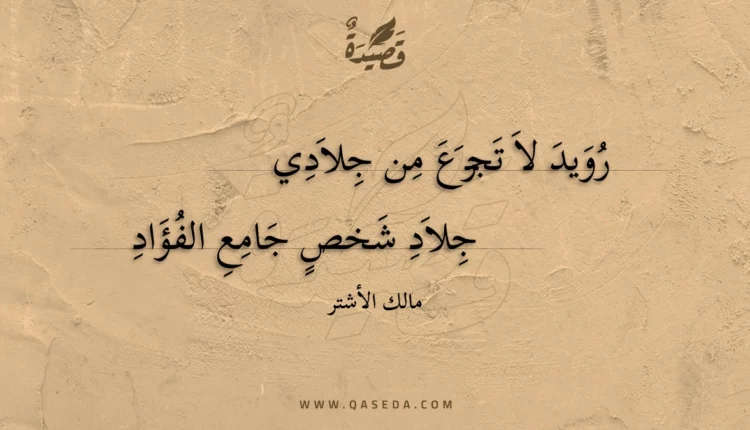 قَصِيْدَةٌ
رُوَيدَ لاَ تَجزَعَ مِن جِلاَدِي
جِلاَدِ شَخصٍ جَامِعِ الفُؤَادِ
مالك الأشتر
WWW.QASEDA.COM